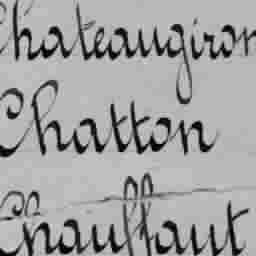 Chateaugiron
Chatton
Chauffaut